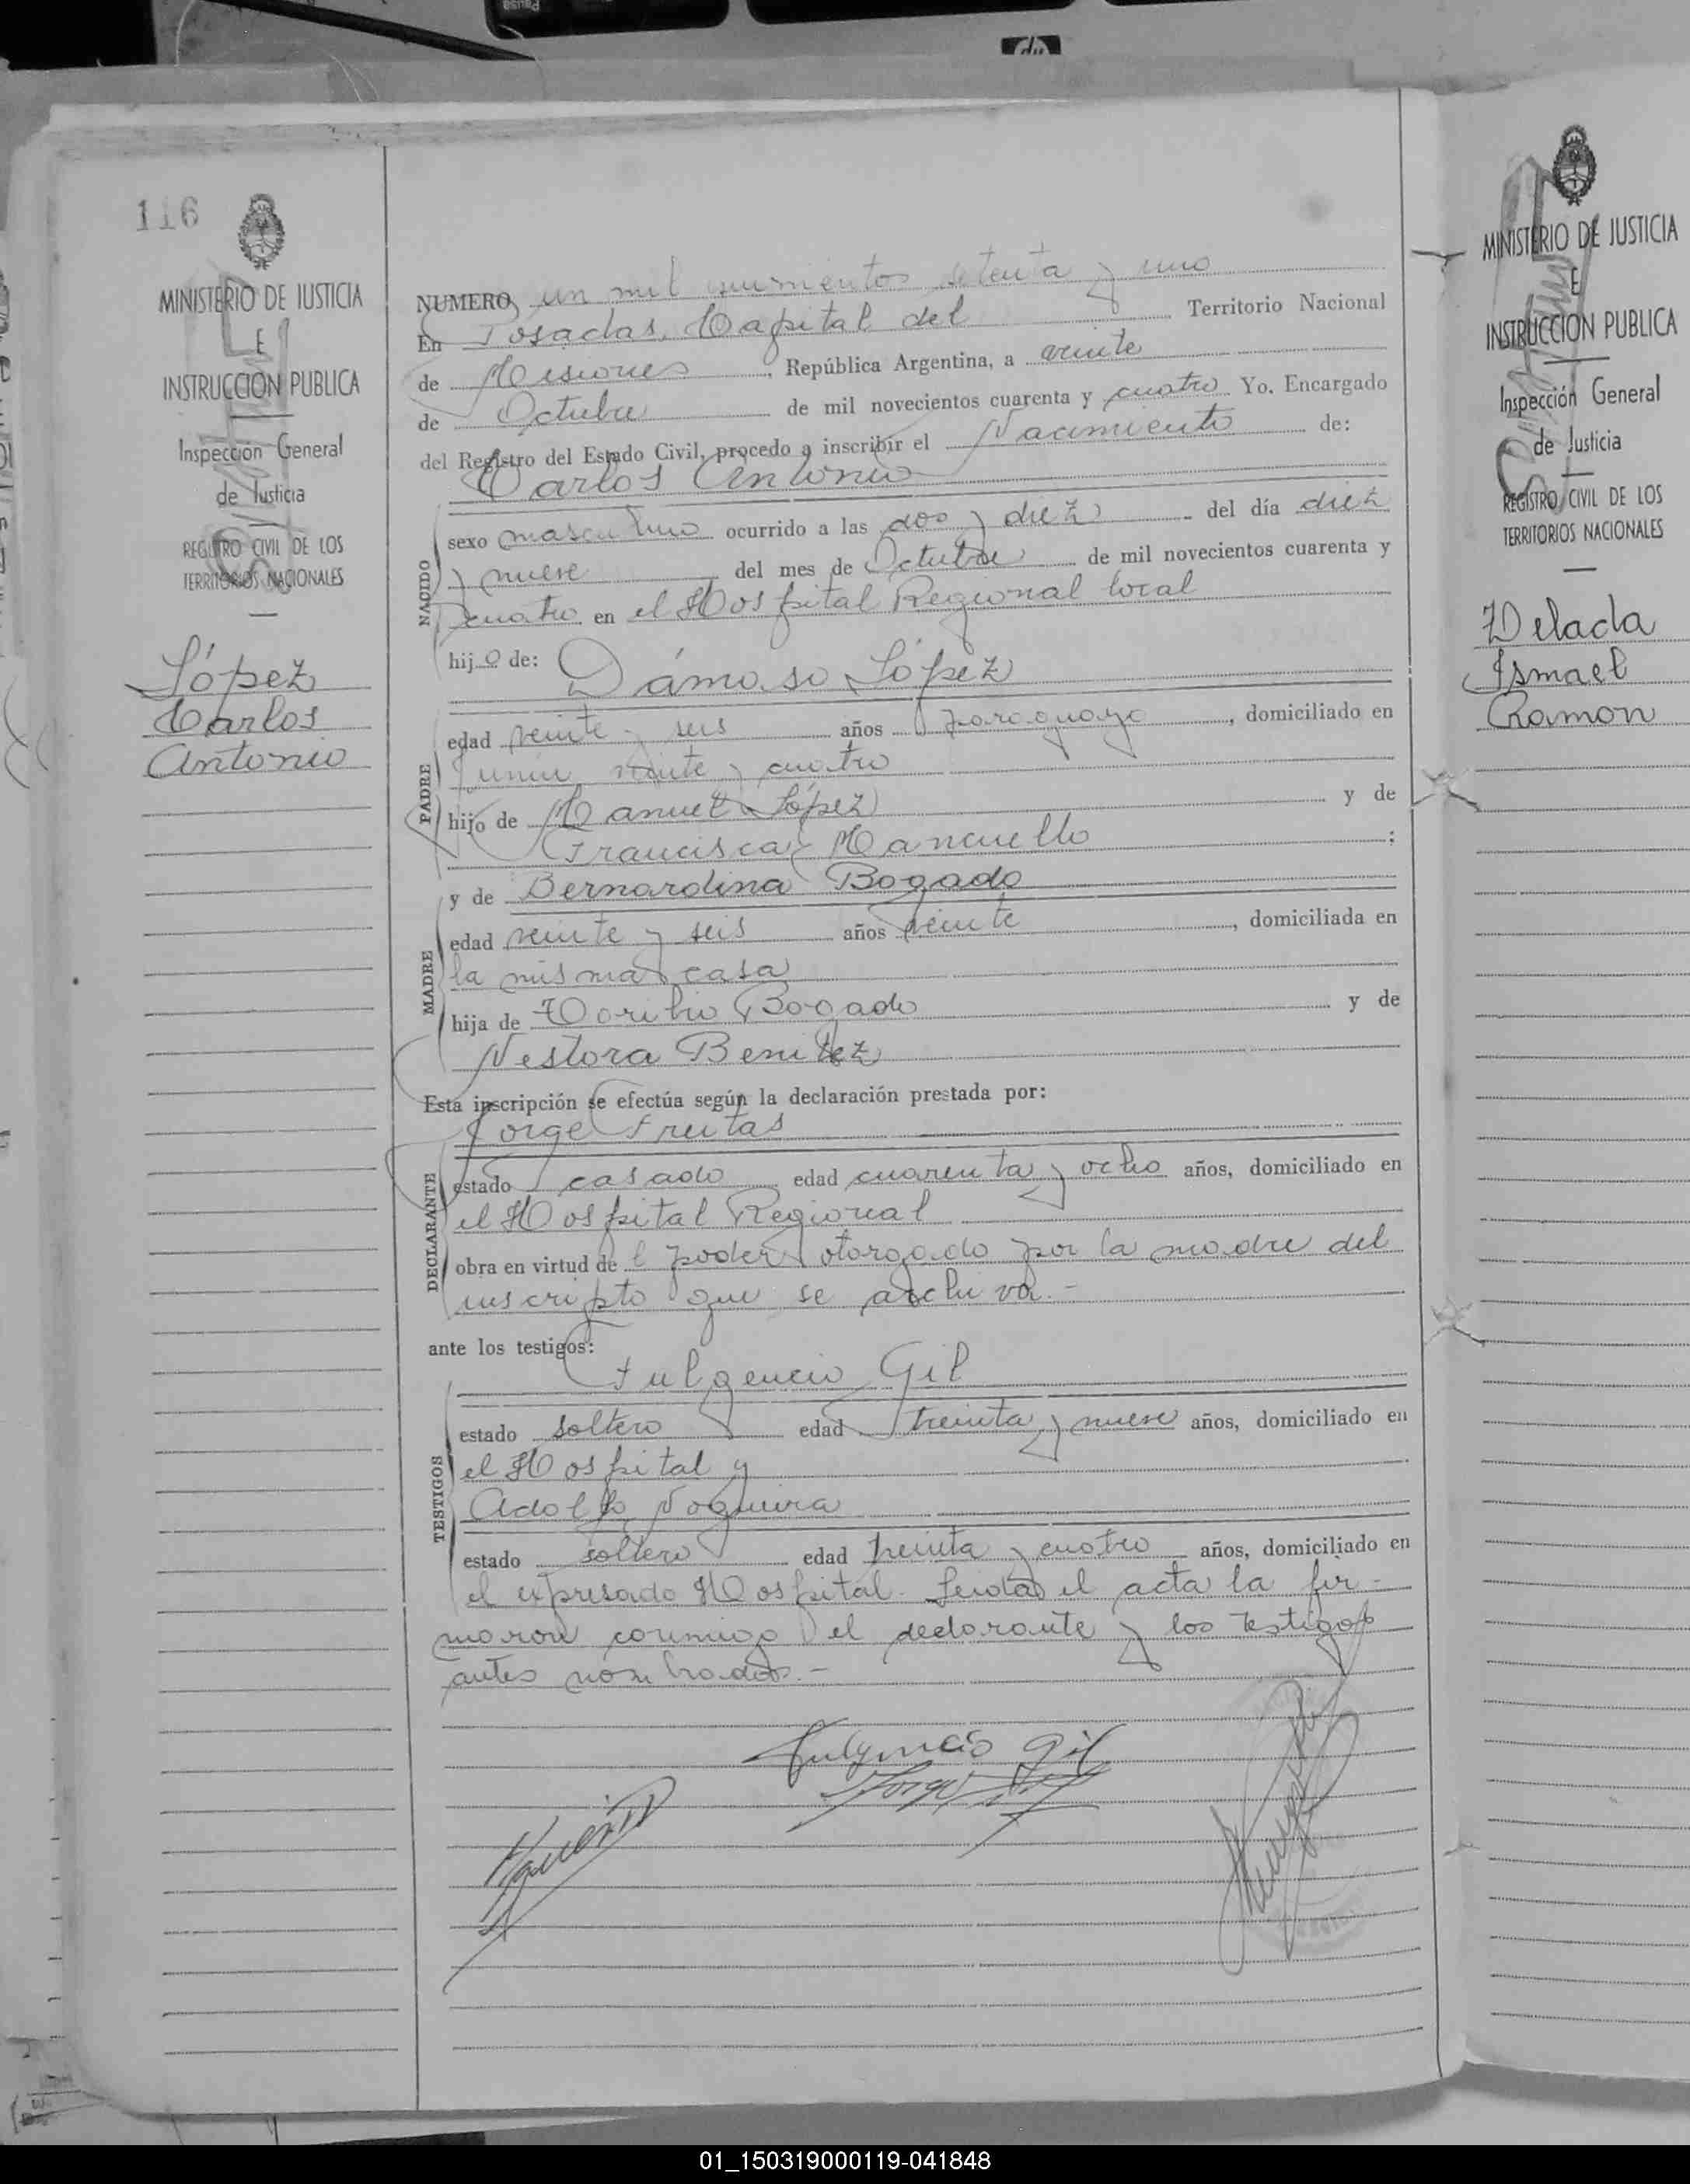 Pausa
hp
116
MINISTERIO DE JUSTICIA
E
INSTRUCCION PUBLICA
Inspección General
de Justicia
REGISTRO CIVIL DE LOS
TERRITORIOS NACIONALES
López
Carlos
Antonio
NUMERO un mil setenta y uno
En Posadas, Capital del Territorio Nacional
de Misiones, República Argentina, a veinte
de Octubre de mil novecientos cuarenta y cuatro Yo. Encargado
del Registro del Estado Civil, procedo a inscribir el Nacimiento de:
Carlos Antonio
NACIDO
sexo masculino ocurrido a las dos y diez del día diez
y nueve del mes de Octubre de mil novecientos cuarenta y
cuatro en el Hospital Regional local
hijo de: Dámaso López
PADRE
edad veinte y seis años paraguayo, domiciliado en
Junin veinte y cuatro
hijo de Manuel López y de
Francisca Mancuello :
y de Bernardina Bogado
MADRE
edad veinte y seis años veinte, domiciliada en
la misma casa
hija de Toribio Bogado y de
Nestora Benitez
Esta inscripción se efectúa según la declaración prestada por:
Jorge Freitas
DECLARANTE
estado casado edad cuarenta y ocho años, domiciliado en
el Hospital Regional
obra en virtud del poder otorgado por la madre del
inscripto que se archiva.-
ante los testigos:
Fulgencio Gil
TESTIGOS
estado soltero edad treinta y nueve años, domiciliado en
el Hospital y
Adolfo Noguera
estado soltero edad treinta y cuatro años, domiciliado en
el expresado Hospital. Leida el acta la fir-
maron conmigo el declarante y los testigos
antes nombrados.-
Fulgencio Gil
Jorge
MINISTERIO DE JUSTICIA
E
INSTRUCCION PUBLICA
Inspección General
de Justicia
REGISTRO CIVIL DE LOS
TERRITORIOS NACIONALES
Delada
Ismael
Ramon
01_150319000119-041848